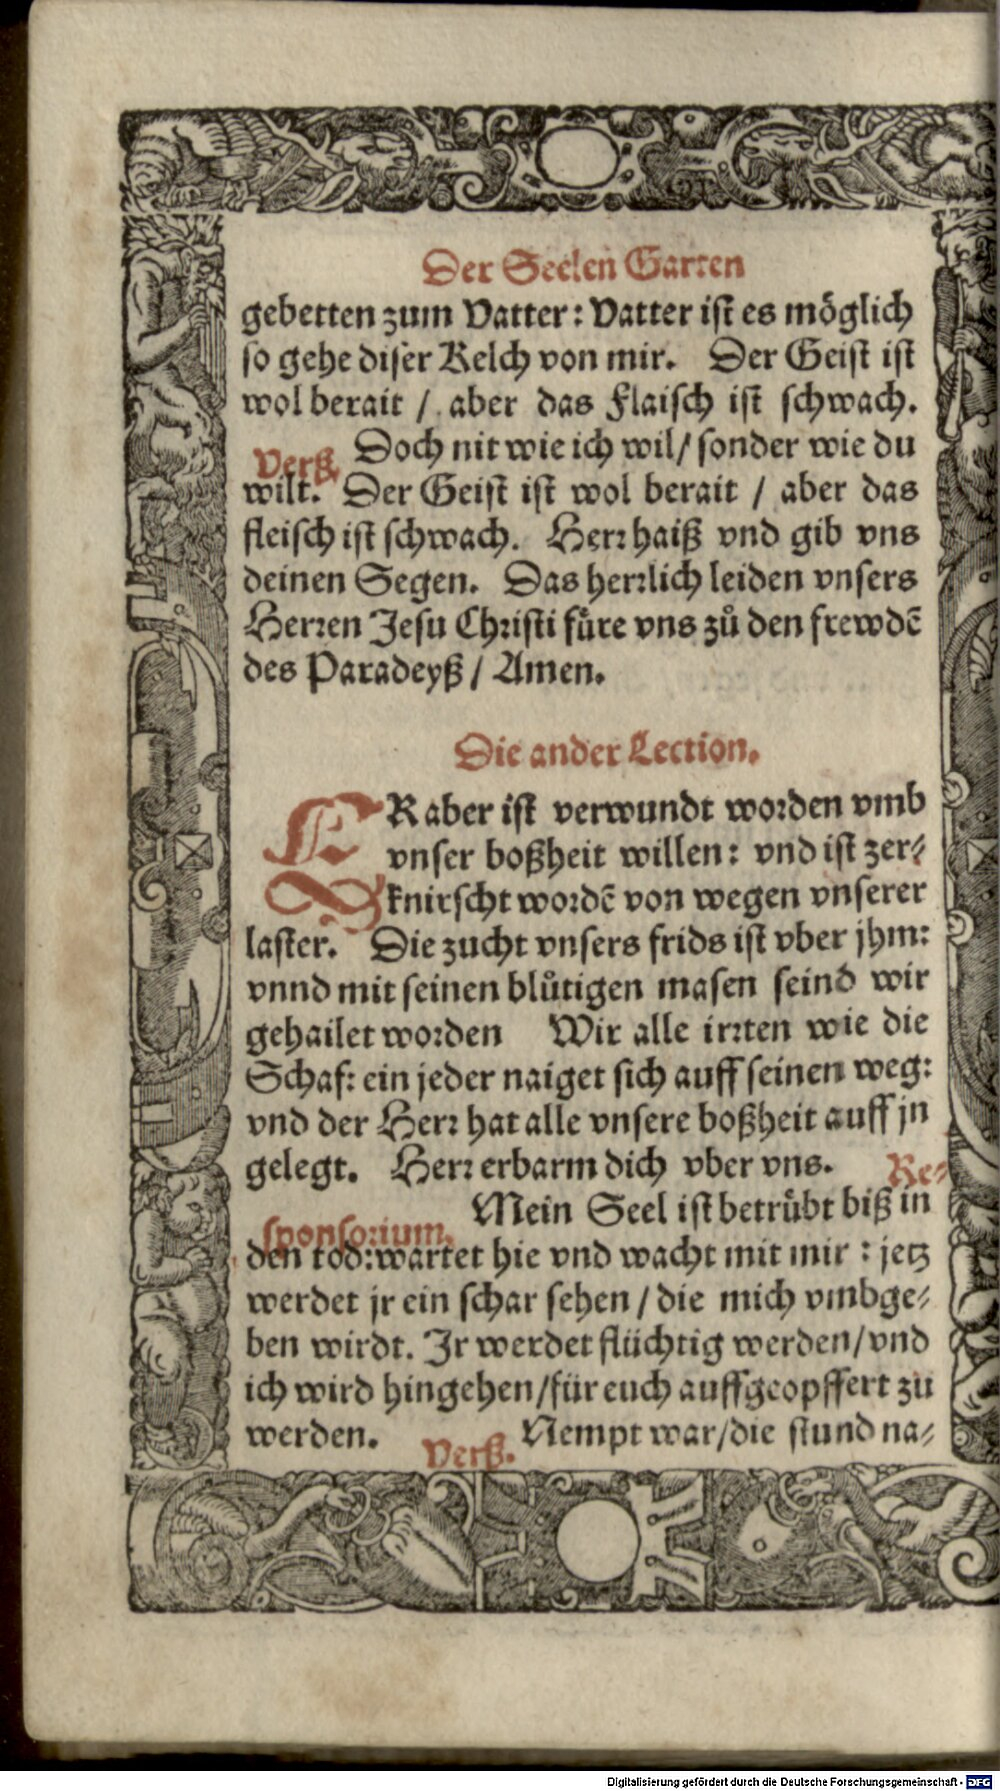 Der Seelen Garten
gebetten zum Vatter: Vatter ist es möglich
so gehe diser Kelch von mir. Der Geist ist
wol berait / aber das Flaisch ist schwach.
Verß. Doch nit wie ich wil / sonder wie du
wilt. Der Geist ist wol berait / aber das
fleisch ist schwach. Herr haiß vnd gib vns
deinen Segen. Das herrlich leiden vnsers
Herren Jesu Christi fuͤre vns zů den frewdẽ
des Paradeyß / Amen.
Die ander Lection.
ER aber ist verwundt worden vmb
vnser boßheit willen: vnd ist zer⸗
knirscht wordẽ von wegen vnserer
laster. Die zucht vnsers frids ist vber jhm:
vnnd mit seinen blůtigen masen seind wir
gehailet worden Wir alle irrten wie die
Schaf: ein jeder naiget sich auff seinen weg:
vnd der Herr hat alle vnsere boßheit auff jn
gelegt. Herr erbarm dich vber vns. Re⸗
sponsorium. Mein Seel ist betruͤbt biß in
den tod: wartet hie vnd wacht mit mir : jetz
werdet jr ein schar sehen / die mich vmbge⸗
ben wirdt. Ir werdet flüchtig werden / vnd
ich wird hingehen / für euch auffgeopffert zu
werden. Verß. Nempt war / die stund na⸗
Digitalisierung gefördert durch die Deutsche Forschungsgemeinschaft - DFG